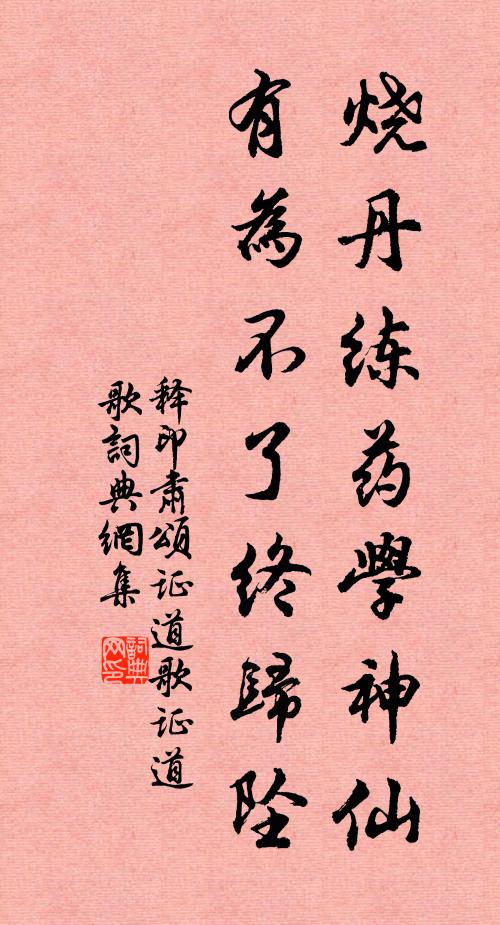 烧丹练药學神仙
有為不了终歸坠
释印肃頌证道歌证道
歌詞典網集
詞典网印